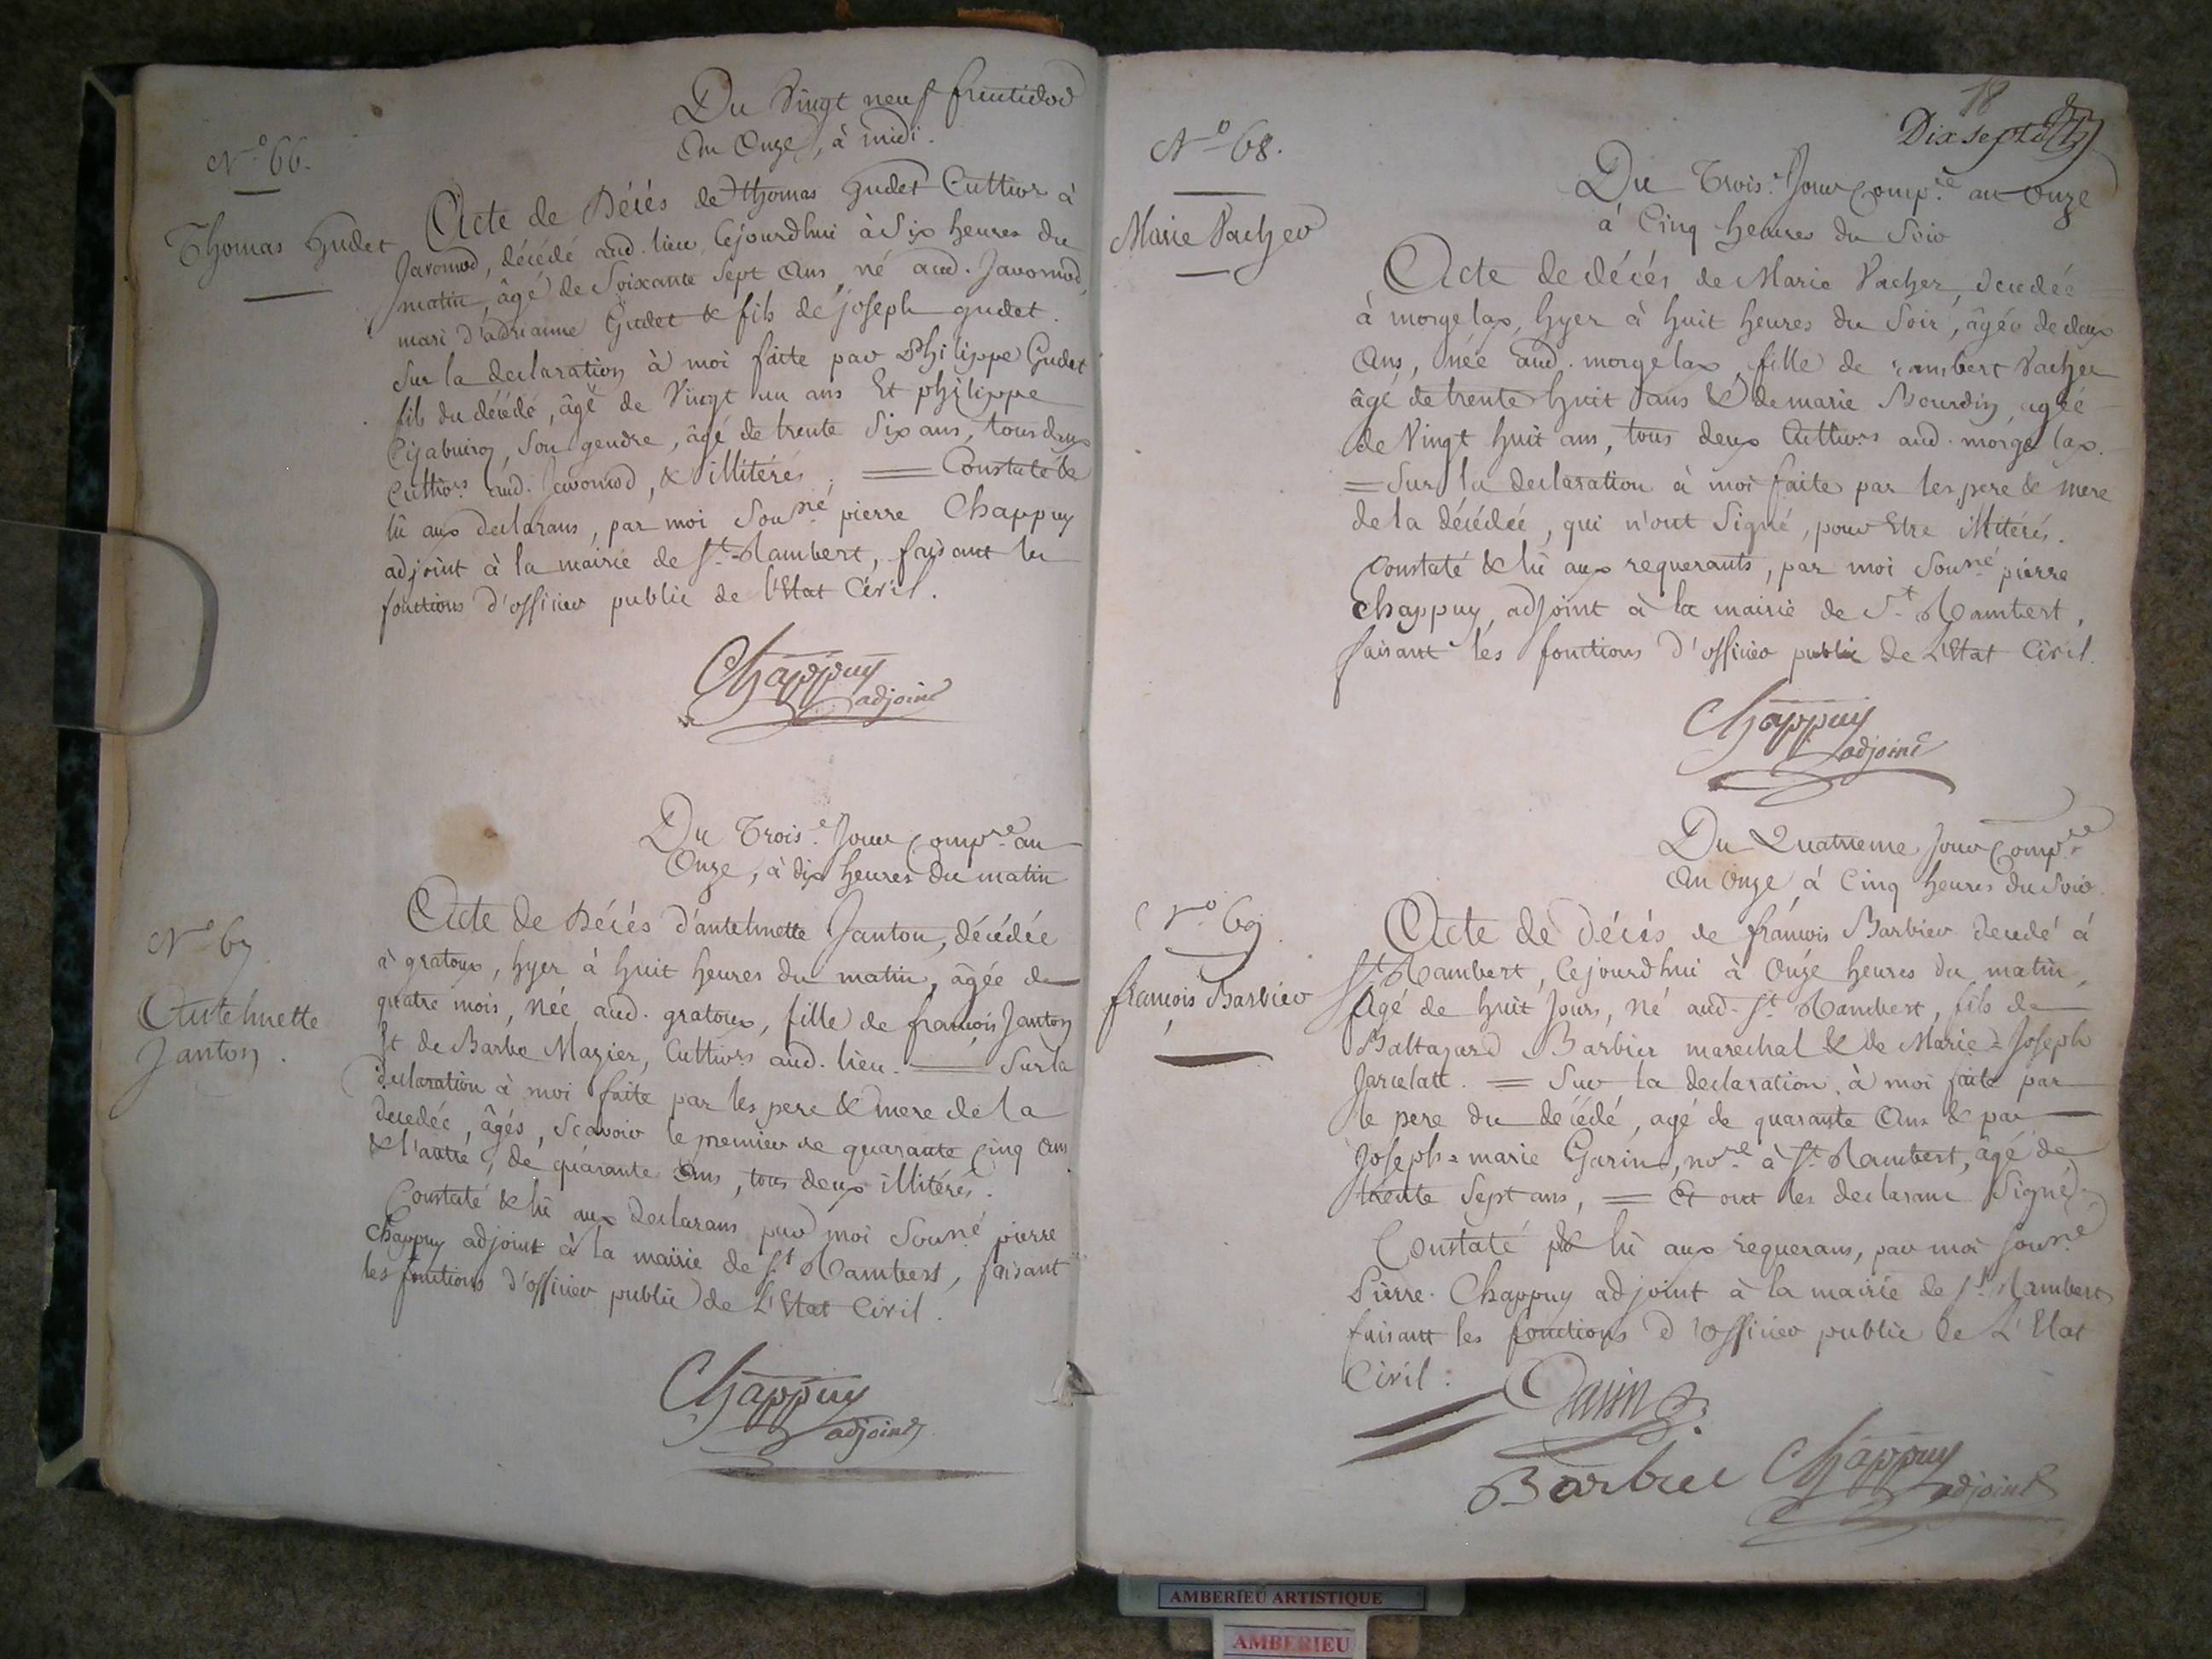 Du Vingt neuf fructidor
An Onze, à midi.
N.o 66.
Thomas Gudet
Acte de Décés de Thomas Gudet Cultivr à
Javornod, décédé aud. lieu, Cejourdhui à Six heures du
matin, âgé de Soixante Sept Ans, né aud. Javornod,
mari d'adrianne Gudet & fils de joseph gudet.
Sur la declaration à moi faite par Philippe Gudet
fils du décédé, âgé de Vingt un ans Et philippe
son gendre, âgé de trente Six ans, tous deux
Cultivrs aud. Javornod, & illitérés. = Constaté &
lû aux declarans, par moi Sousné pierre Chappuy
adjoint à la mairie de St. Rambert, faisant les
fonctions d'officier public de l'Etat Civil.
Chappuy
adjoint
Du Trois.e Jour Compre an
Onze, à dix heures du matin
N.o 67
Antelmette
Janton.
Acte de Décés d'antelmette Janton, décédée
à gratoux, hyer à huit heures du matin, âgée de
quatre mois, née aud. gratoux, fille de françois Janton
Et de Barbe Mazier, Cultivrs aud. lieu. — Sur la
declaration à moi faite par les pere & mere de la
decedée, âgés, Scavoir le premier de quarante Cinq ans
& l'autre, de quarante Ans, tous deux illitérés.
Constaté & lû aux Declarans par moi Sousné pierre
Chappuy adjoint à la mairie de St Rambert, faisant
les fonctions d'officier public de L'Etat Civil.
Chappuy
adjoint
18
Dix sept
N.o 68.
Marie Vacher
Du Trois.e Jour Compre an Onze
à Cinq heures du Soir
Acte de décés de Marie Vacher, decedée
à morgelax, hyer à huit heures du Soir, âgée de deux
Ans, née aud. morgelax, fille de rambert Vacher
âgé de trente huit ans & de marie Bourdin, agée
de Vingt huit ans, tous deux Cultivrs aud. morgelax.
= Sur la declaration à moi faite par les pere & mere
de la décédée, qui n'ont Signé, pour Etre illitérés.
Constaté & lû aux requerants, par moi Sousné pierre
Chappuy, adjoint à la mairie de St Rambert,
faisant les fonctions d'officier public de L'Etat Civil.
Chappuy
adjoint
Du Quatrieme Jour Compre
An Onze à Cinq heures du Soir.
N.o 69.
françois Barbier
Acte de décés de françois Barbier decedé à
St Rambert, Cejourdhui à Onze heures du matin,
Agé de huit Jours, né aud. St Rambert, fils de
Baltazard Barbier marechal & de Marie=Joseph
Jarcelatt. = Sur la declaration à moi faite par
le pere du décédé, agé de quarante Ans & par
Joseph=marie Garin, nore à St Rambert, âgé de
trente Sept ans, = Et ont les declarans Signé.
Constaté & lû aux requerans, par moi Sousné
Pierre Chappuy adjoint à la mairie de St Rambert
faisant les fonctions d'officier public de L'Etat
Civil.
Garin
Barbier
Chappuy
adjoint
AMBERIEU ARTISTIQUE
AMBERIEU